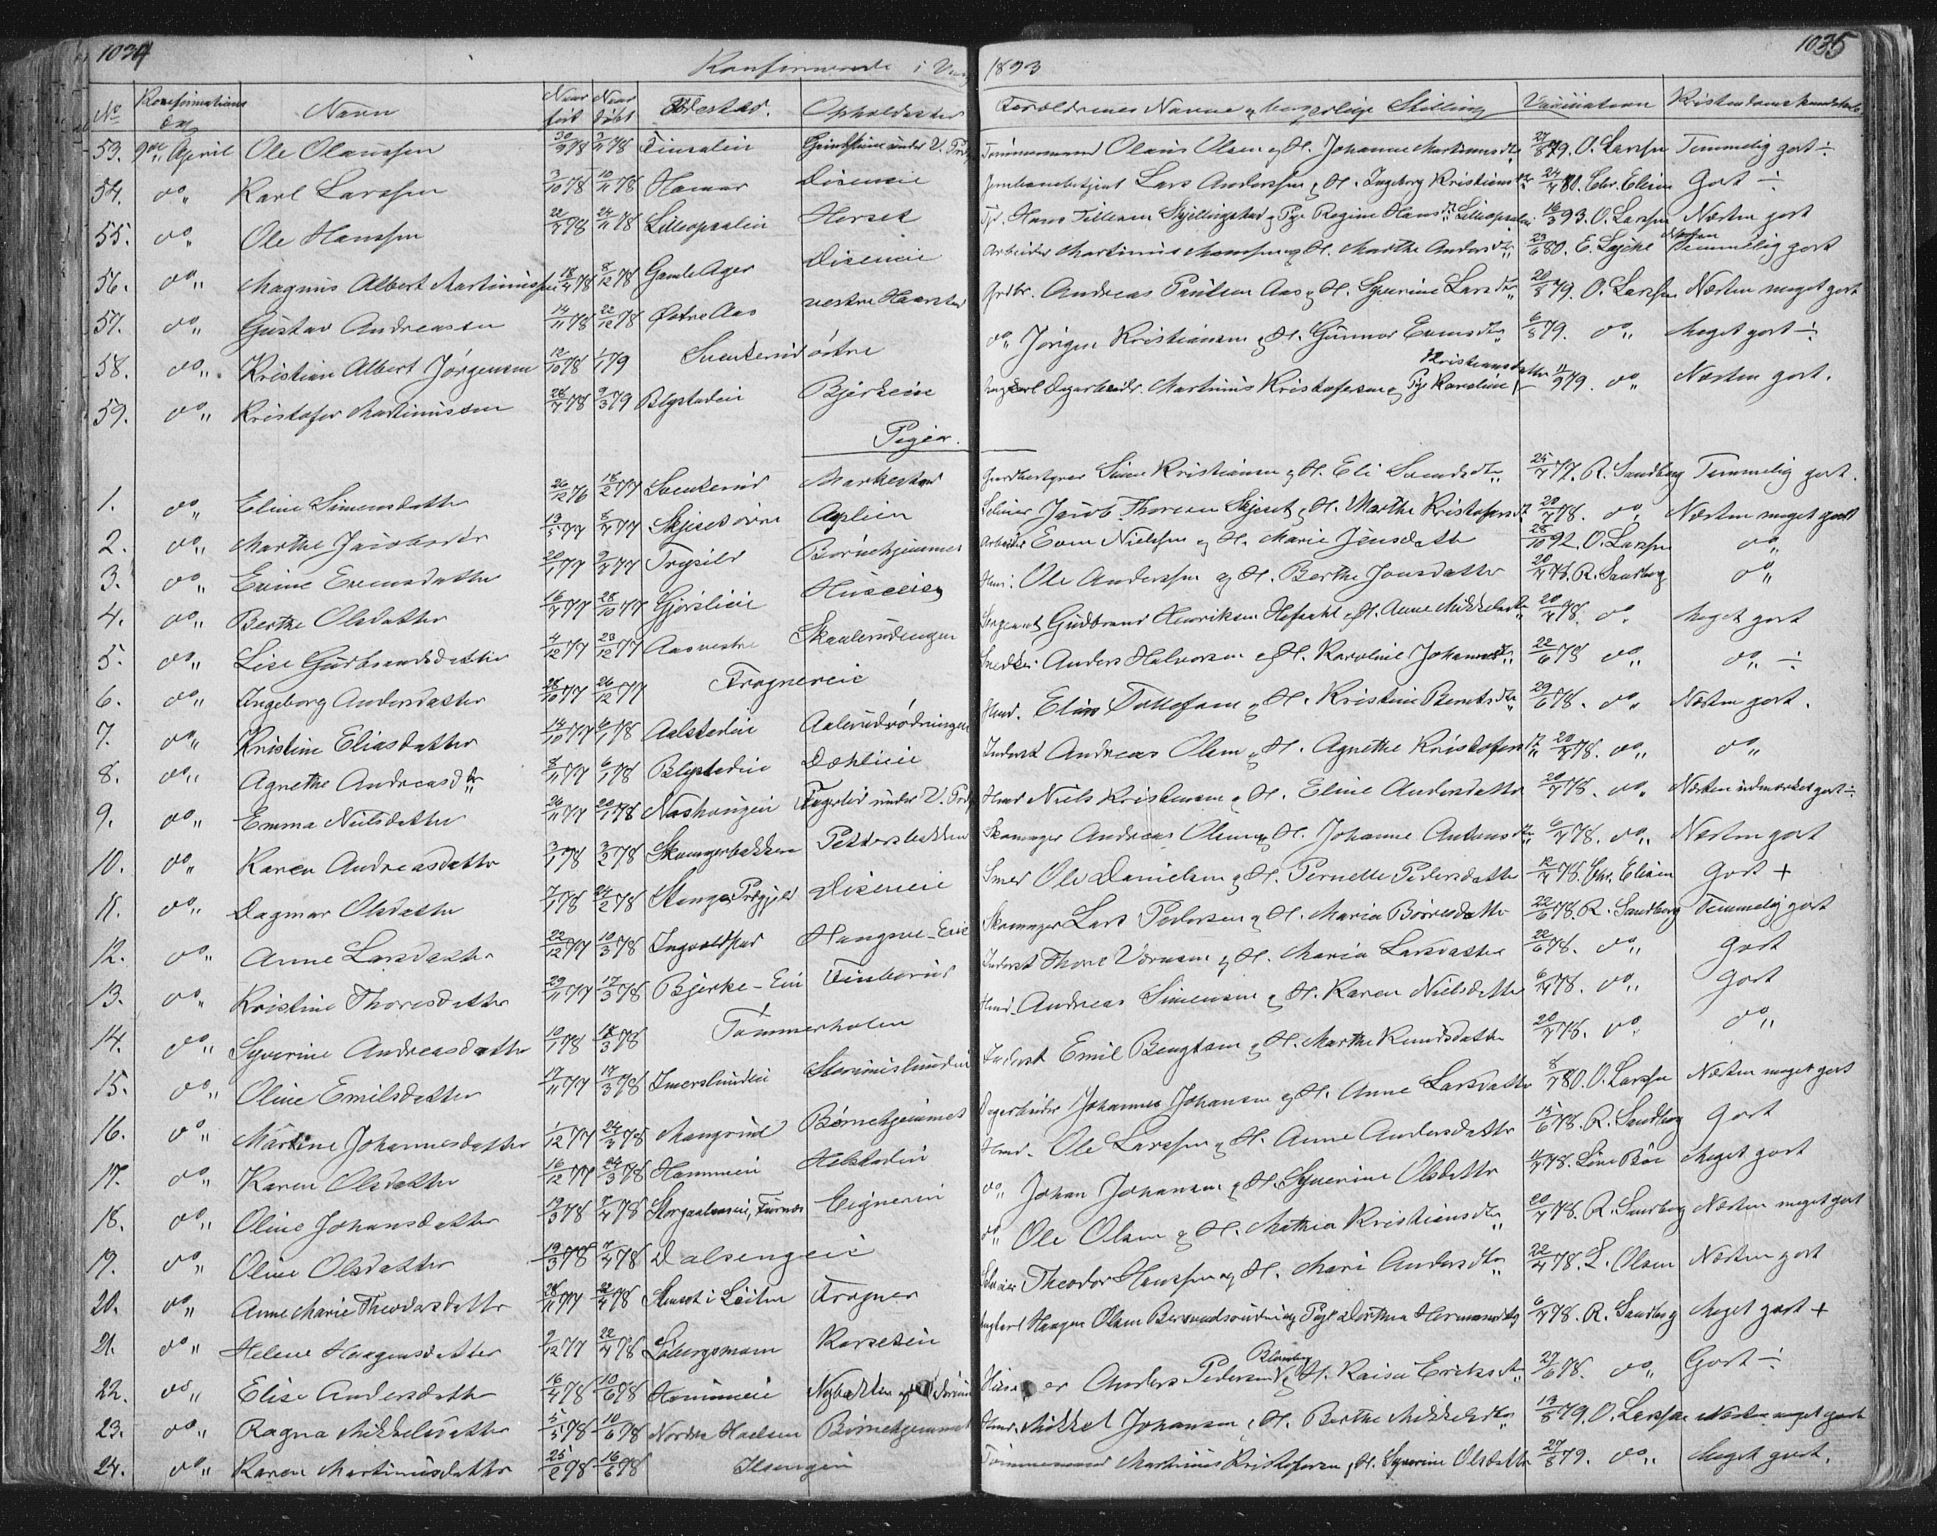 1034
Konfirmerede i Vang 1893
1035
No Konfirmations Dag Navn Naar født Naar døbt Fødested. Opholdssted Forældrenes Navne og borgerlige Stilling Vaccination Kristendomskundskab
53. 9de April Ole Olaussen 30/9 78 3/11 78 Finsalien Tømmermand Olaus Olsen og H. Johanne Martinusdtr 27/8 79. O. Larssen Temmelig godt ÷
54. do Karl Larssen 3/10 78 10/11 78 Hamar Disencie Jernbanebetjent Lars Anderssen og H. Ingeborg Kristiansdtr 24/4 80. Chr. Elisen Godt ÷
55. do Ole Hanssen 22/9 78 24/11 78 Lilleopsalien Horset Hans Tillesen Skjellingstad og Pige Regine Hansdtr Lilleopsalien 16/3 93. O. Larssen Næsten godt
56. do Magnus Albert Martinussen 8/12 78 Gamle Ager Disencie Arbeider Martinus Monsen og H. Marthe Andersdtr 23/6 80. Næsten Temmelig godt
57. do Gustav Andreassen 14/11 78 22/12 78 Østre Aas vestre Haarstad Grdbr. Andreas Paulsen Aas og H. Syverine Larsdtr 20/8 79. O. Larssen Næsten meget godt
58. do Kristian Albert Jørgensen 12/10 78 1/1 79 Svenkerud østre do Jørgen Kristiansen og H. Gunnor Evensdtr 6/8 79. do Meget godt ÷
59. do Kristofer Martinussen 28/7 78 9/3 79 Blystadeie Bjerkeeie Ungkarl Dagarbeider Martinus Kristofersen og Pige Karoline Kristiansdatter 11/9 79. do Næsten godt.
Piger.
1. do Eline Simensdatter 26/12 76 18/2 77 Svenkerud Markestad Gaardbestyrer Simen Kristiansen og H. Eli Svendsdtr 25/7 77. R. Sandberg Temmelig godt.
2. do Marthe Jacobsdtr 13/3 77 8/4 77 Skjeset øvre Asplien Jacob Thoresen Skjeset og H. Marthe Kristofersdtr 20/4 78. do Næsten meget godt
3. do Evine Evensdatter Trysild Børnehjemmet Arbeider Even Nielssen og H. Marie Jensdatter 28/10 92. O. Larssen do
4. do Berthe Olsdatter 16/9 77 28/10 77 Gjørslieie Husmd. Ole Anderssen og H. Berthe Jonsdatter 20/4 78. R. Sandberg do
5. do Lise Gudbrandsdatter 4/12 77 23/12 77 Aas vestre Skaalerudengen Sergeant Gudbrand Henriksen og H. Anne Mikkelsdtr 20/4 78. do Meget godt
6. do Ingeborg Andersdatter 28/10 77 26/12 77 Frognereie Snedker Anders Halvorsen og H. Karoline Johannesdtr 22/6 78 do do ÷
7. do Kristine Eliasdatter 14/10 77 6/1 78 Aalstadeie Aalerudrødningen Husmd. Elias Tollefsen og H. Kristine Berntsdtr 29/6 78. do Næsten godt.
8. do Agnethe Andreasdtr 8/11 77 6/1 78 Blystadeie Dæhlieie Inderst Andreas Olsen og H. Agnethe Kristofersdtr 20/4 78. do do
9. do Emma Nielsdatter 26/11 77 20/1 78 Næshaugen Husmd Niels Kristensen og H. Eline Andersdatter 20/4 78. do Næsten udmærket godt ÷
10. do Karen Andreasdatter 3/1 78 3/2 78 Skomagerbakken Pettersbakken Skomager Andreas Olsen og H. Johanne Antonsdtr 6/4 78. do Næsten godt
11. do Dagmar Olsdatter 7/1 78 24/2 78 Stange Prægjeld Disencie Smed Ole Danielsen og H. Pernelle Pedersdatter 12/4 78. Chr. Elisen Godt +
12. do Anne Larsdatter 22/12 77 10/3 78 Ingvoldstad Skomager Lars Pedersen og H. Maria Børresdatter 22/6 78. R. Sandberg Temmelig godt
13. do Kristine Thoresdatter 29/11 77 17/3 78 Bjerke-Eie Finborud Inderst Thore Vørnsen og H. Maria Larsdatter 22/6 78. do Godt
14. do Syverine Andreasdatter 10/1 78 17/3 78 Tømmerholen Husmd. Andreas Simensen og H. Karen Nielsdatter 6/4 78. do Godt
15. do Oline Emilsdatter 17/11 77 17/3 78 Imerslundeie Inderst Emil Bengtsen og H. Marthe Knudsdatter 20/4 78. do do
16. do Martine Johannesdatter 1/12 77 24/3 78 Mangrud Børnehjemmet Dagarbeider Johannes Johansen og H. Anne Larsdatter 8/4 80. O. Larssen Næsten meget godt
17. do Karen Olsdatter 16/12 77 24/3 78 Hommeie Helstadeie Husmd. Ole Larssen og H. Anne Andersdatter 15/6 78. R. Sandberg Godt
18. do Oline Johansdatter 12/3 78 7/4 78 Furnæs do Johan Johansen og H. Syverine Olsdatter Line Bøe Meget godt
19. do Oline Olsdatter 19/3 78 7/4 78 Dalsengeie do Ole Olsen og H. Mathia Kristiansdtr 20/4 78. R. Sandberg Næsten meget godt
20. do Anne Marie Theodorsdatter 28/11 77 22/4 78 Stenset i Løiten Frogner Theodor Hanssen og H. Mari Andersdtr 22/4 78. L. Olsen Næsten godt
21. do Helene Haagensdatter 9/12 77 22/4 78 Løbergsmoen Karsetein Ungkarl Haagen Olsen og Pige Dorthea Hermansdtr 6/4 78. R. Sandberg Meget godt +
22. do Elise Andersdatter 16/4 78 10/6 78 Hommeie Nybakken Anders Pedersen Blomberg og H. Kaisa Eriksdtr 27/6 78. do Godt ÷
23. do Ragna Mikkelsdatter 5/5 78 10/6 78 Nordre Hoelsen Børnehjemmet Husmd. Mikkel Johansen og H. Berthe Mikkelsdtr 13/8 79. O. Larssen Næsten meget godt
24. do Karen Martinusdatter 25/2 78 16/6 78 Ilsengen Tømmermand Martinus Kristofersen og H. Syverine Olsdatter 27/8 79. do Meget godt.